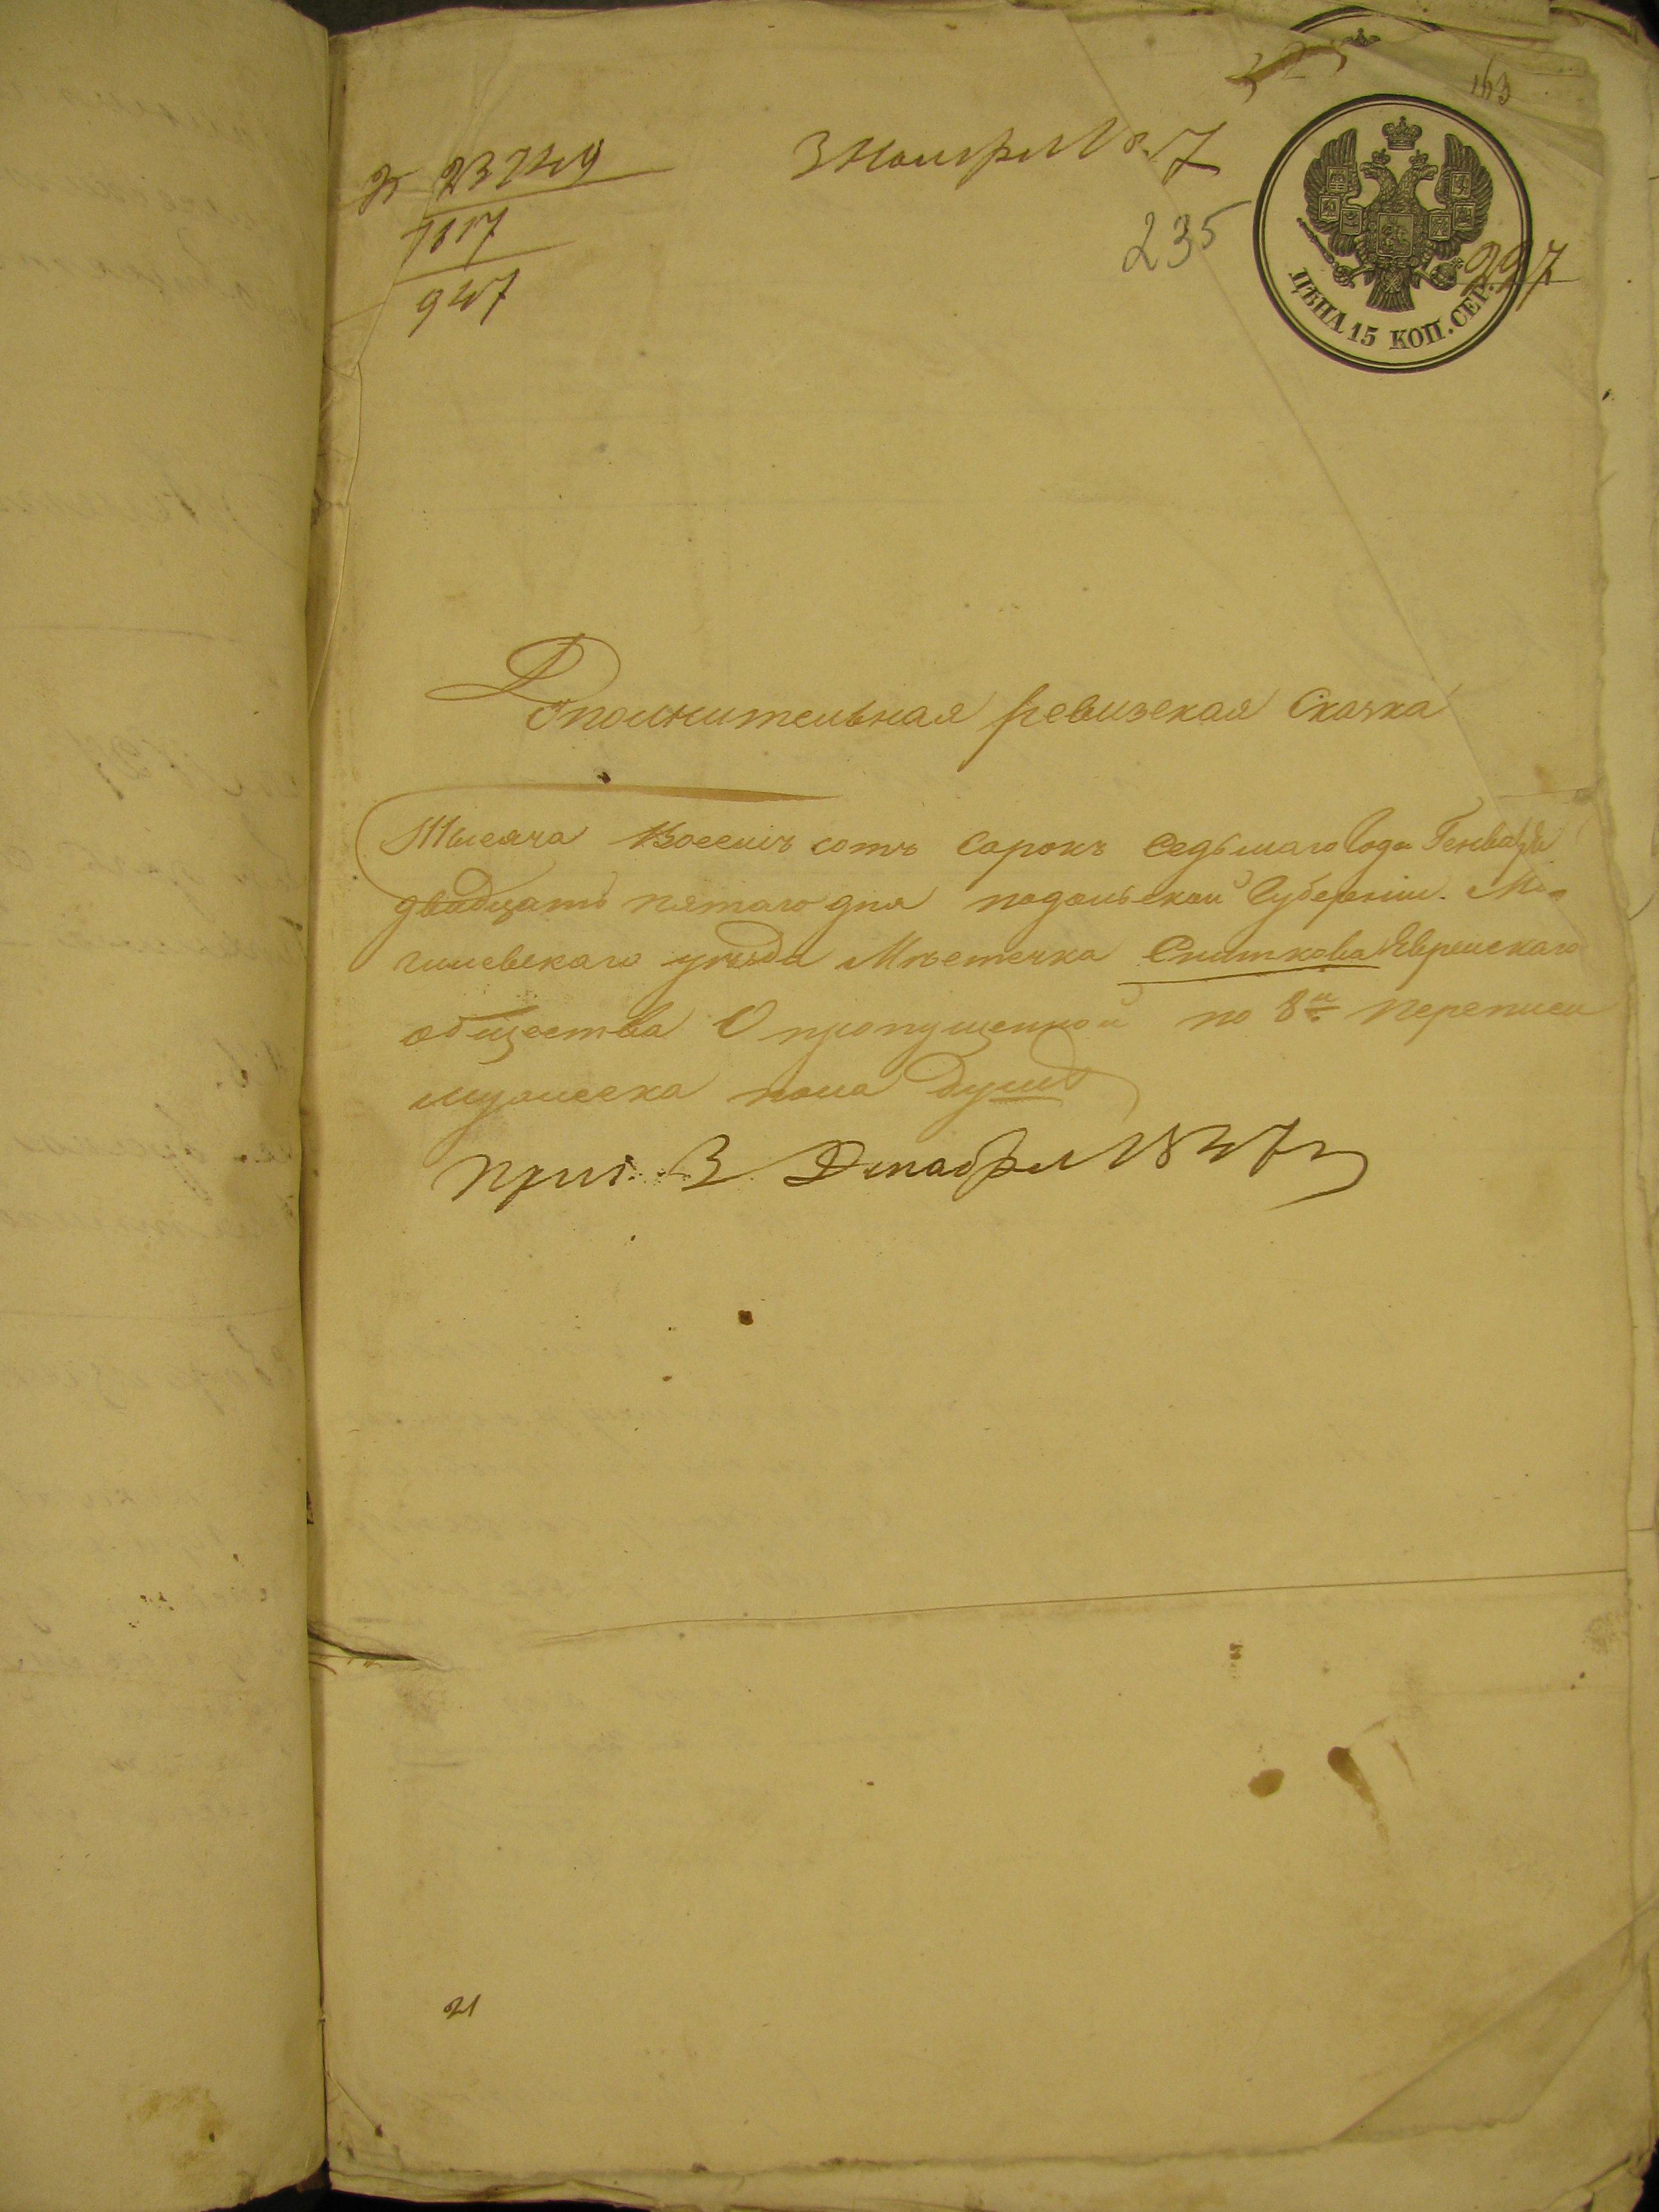 163
23749
3 Ноября
1817
235
997
947
ЦѢНА 15 КОП. СЕР.
Дополнительная ревизская Сказка
Тысяча Восемь сотъ сорокъ седьмаго года Генваря
двадцать пятаго дня подольской Губерніи. Мо-
гилевскаго уѣзда Мѣстечка Сниткова Еврейскаго
общества О пропущенной по 8й переписи
мужеска пола душѣ
3 Декабря 1847 г
21